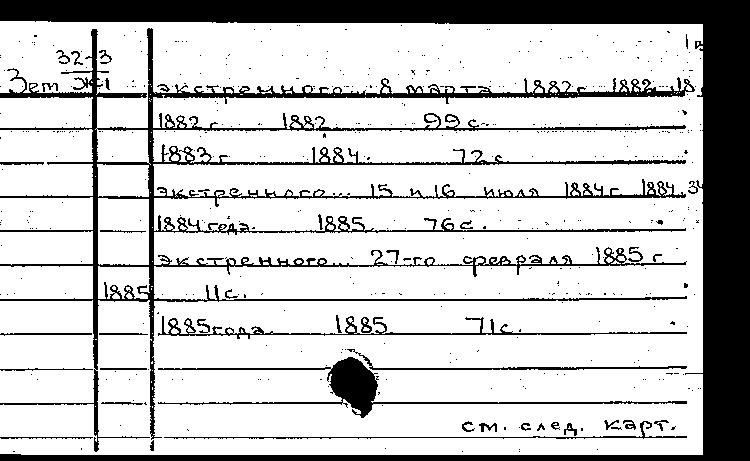 32-3
Зет Ж1
экстренного... 8 марта 1882г. 1882. 18
1882 г. 1882 99 с.
1883 г. 1884. 72 с.
экстренного... 15 и 16 июля 1884 г. 1884. 34
1884 года. 1885. 76 с.
экстренного... 27-го февраля 1885 г.
1885 11 с.
1885 года 1885. 71 с.
см. след. карт.